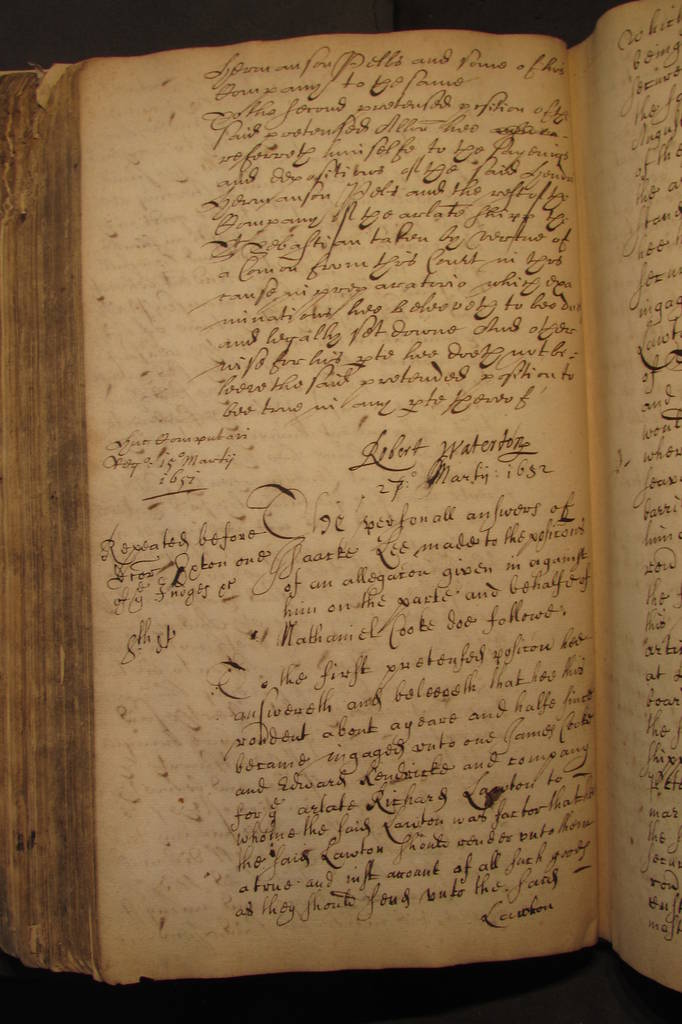 Hermanson Pells and some of his
Company to the same
To the second pretended position of the
said pretended Allōn hee
referreth himselfe to the sayeings
and depositions of the said Hendr
Hermanson Pels and the rest of the
Company of the arlate shipp the
St Sebastian taken by vertue of
a Comōn from this Court in this
cause in preparatorio which exa
minations hee beleeveth to bee due
and legally set downe And other
wise for his pte hee doeth not be-
leeve the said pretended position to
bee true in any pte thereof
Huc Computari
15o Martij
1651
Robert Waterton
27o: Martij: 1652
Repeated before
Doctor Exton one
of ye Judges &c
The personall answers of
Isaacke Lee made to the posicōns
of an allegacōn given in against
him on the parte and behalfe of
Nathaniel Cooke doe followe.
To the first pretensed posicōn hee
answereth and beleeveth that hee this
rondent about a yeare and halfe since
became ingaged unto one James Cooke
and Edward Kendricke and company
for ye arlate Richard Lawton to
whome the said Lawton was factor that he
the said Lawton should render unto them
a true and iust account of all such goods
as they should send unto the said
Lawton